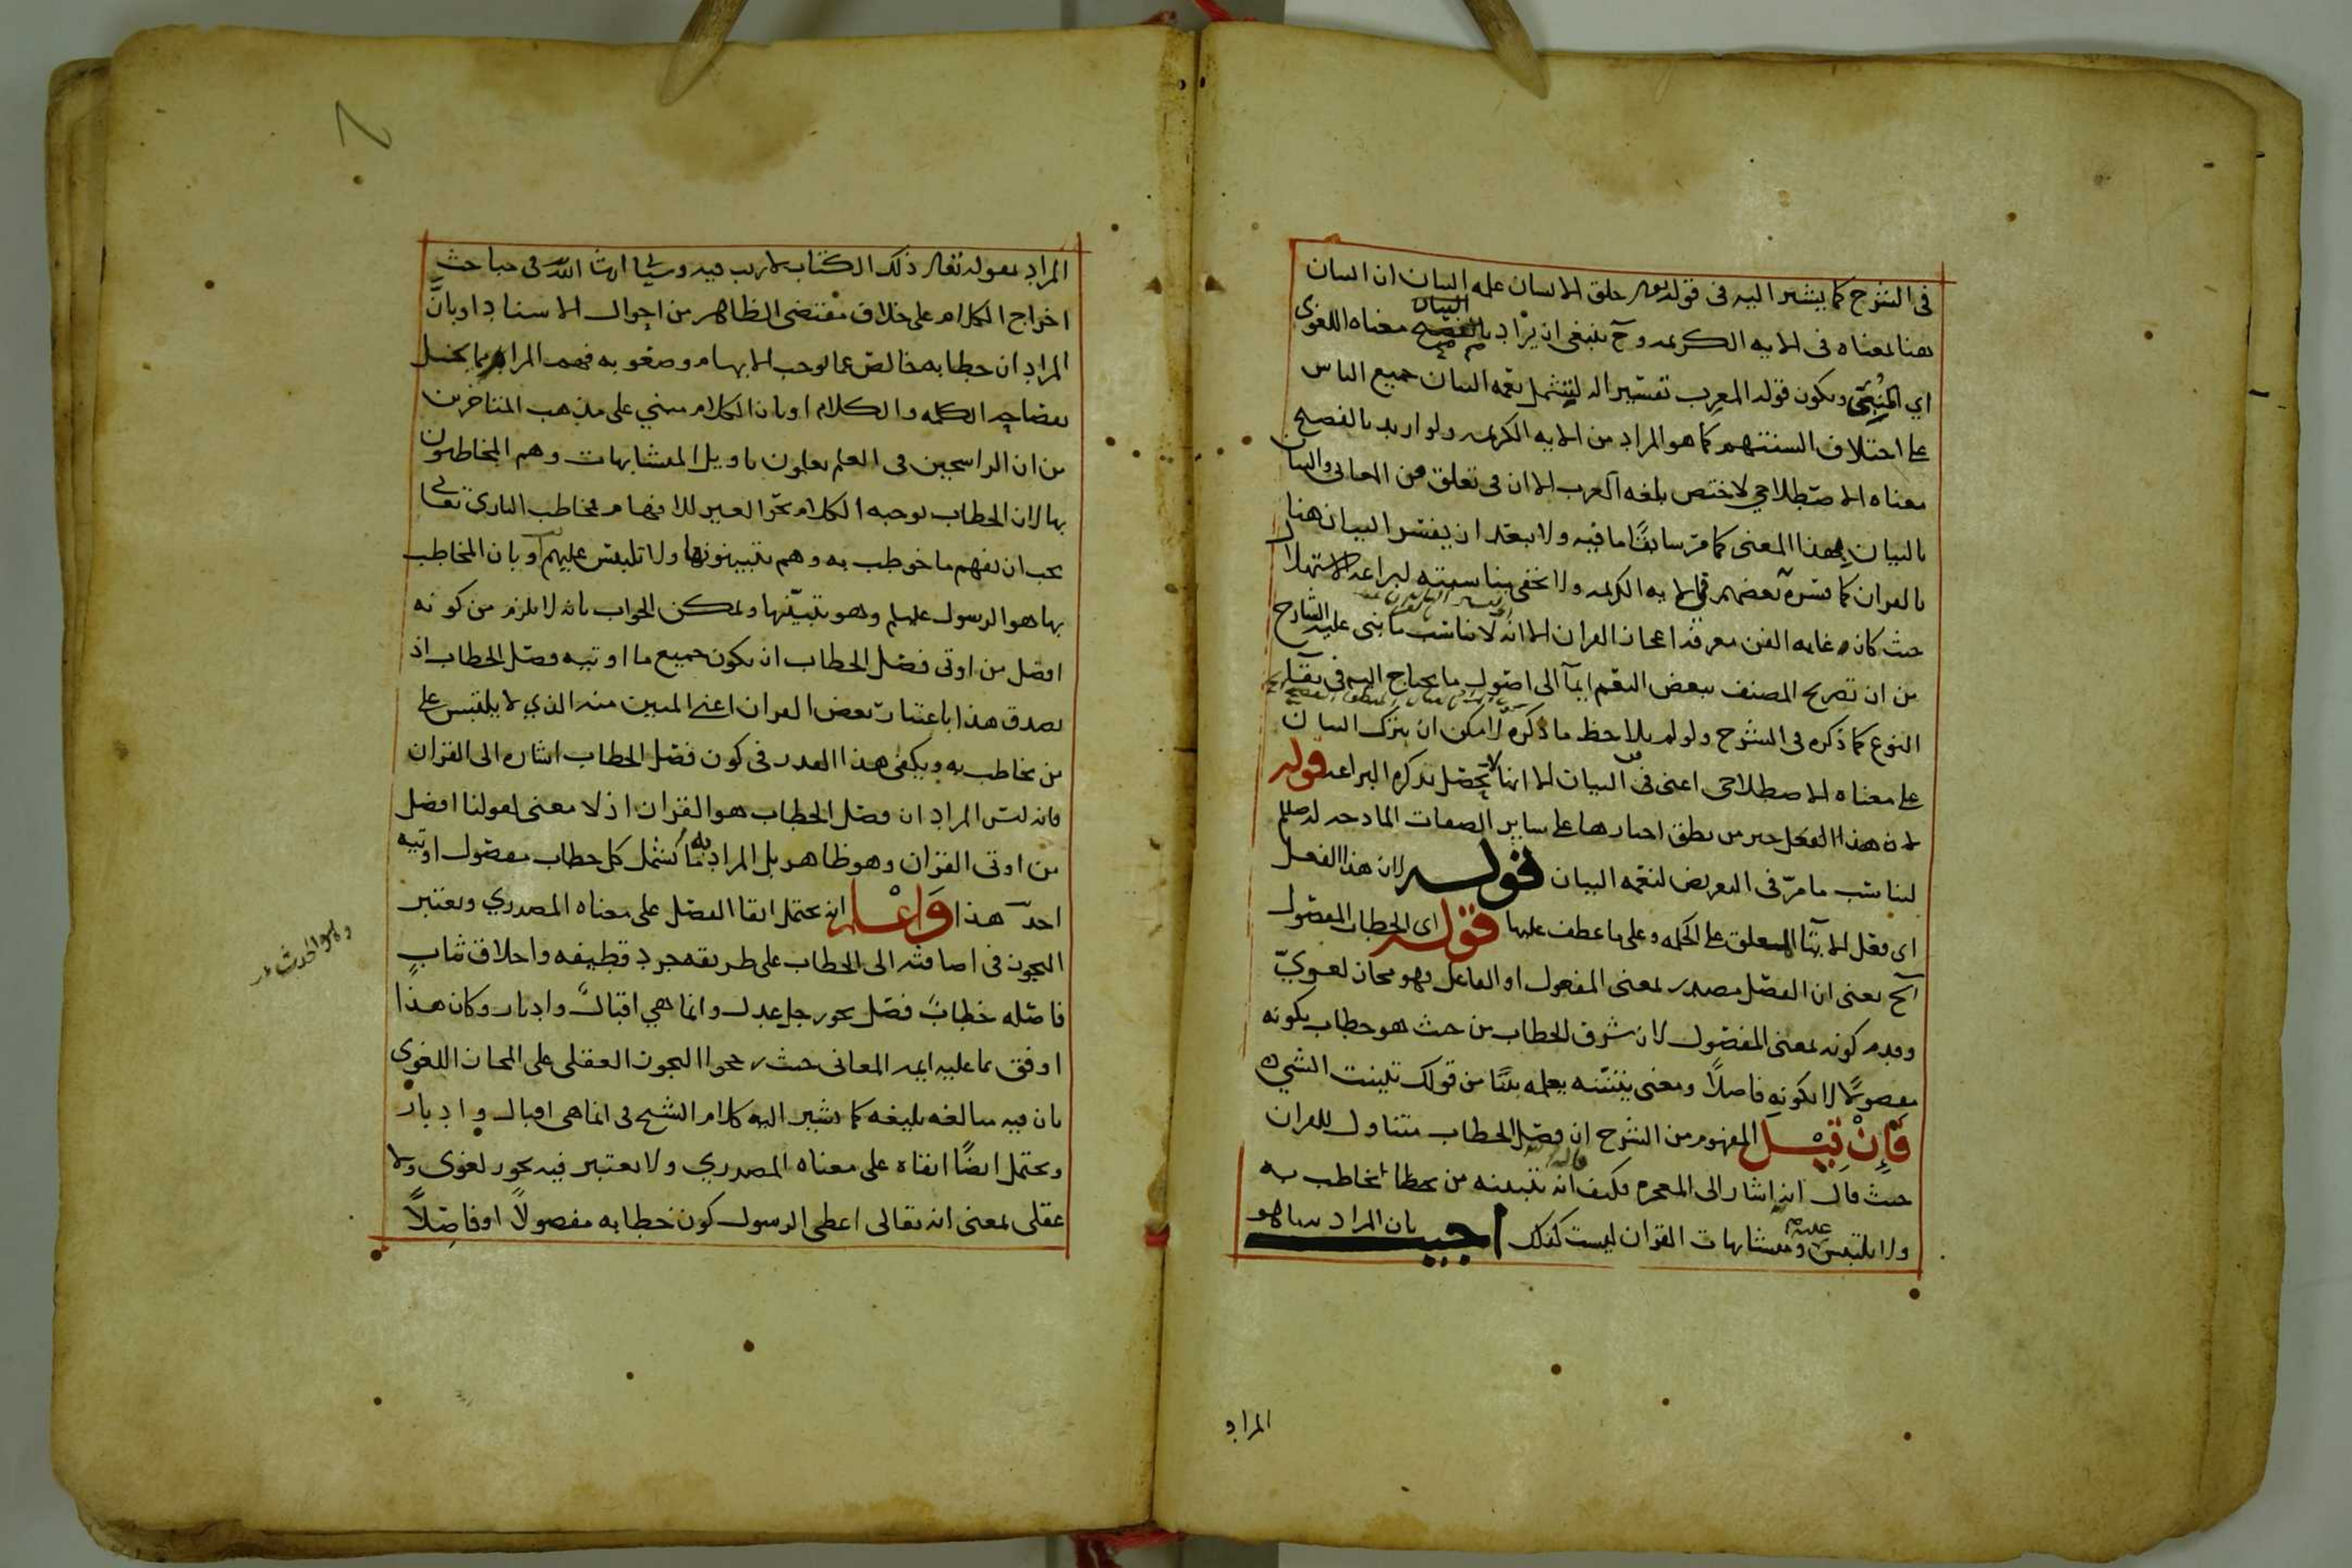 في الشرح كما يشير اليه في قوله تعالى خلق الانسان علمه البيان ان البيان
ههنا بمعناه في الايه الكريمه وح ينبغي ان يراد بالفصيح معناه اللغوى
البيان
اي المنبئ ويكون قوله المعرب تفسيرا له ليشمل نعمه البيان جميع الناس
على اختلاف السنتهم كما هو المراد من الايه الكريمه ولو اريد بالفصيح
معناه الاصطلاحي لاختص بلغه العرب الا ان في تعلق فن المعاني والبيان
بالبيان بهذا المعنى كما مر سابقًا ما فيه ولا يبعد ان يفسر البيان هنا
بالقران كما فسره بعضهم في الايه الكريمه ولا يخفى مناسبته لبراعه الاستهلال
حيث كان غايه الفن معرفه اعجاز القران الا انه لا يناسب ما بنى عليه الشارح
من ان تصريح المصنف ببعض النعم ايمآ الى اصول ما يحتاج اليه في بقآ
النوع كما ذكره في الشرح ولو لم يلاحظ ما ذكره لامكن ان يترك البيان
على معناه الاصطلاحي اعنى فن البيان الا انها لا تحصل بذكره البراعه قوله
لان هذا الفعل
ليناسب ما مر في التعريض لنعمه البيان قوله لان هذا الفعل
اي فعل الايتآ المتعلق على الحكمه وعلى ما عطف عليها قوله اى الخطاب المفصول
آلخ يعنى ان الفصل مصدر بمعنى المفعول او الفاعل وهو مجاز لغويّ
وقدم كونه بمعنى المفصول لان شرف الخطاب من حيث هو خطاب بكونه
مفصولاً لا بكونه فاصلاً ومعنى يتبينه يعلمه بينًا من قولك تبينت الشيء
فَإِنْ قِيْل المفهوم من الشرح ان فصل الخطاب متناول للقران
حيث قال انه اشار الى المعجزه فكيف انه يتبينه من يخاطب به
ولا يلتبس عليه ومتشابهات القران ليست كذلك اجيب بان المراد بما هو
المراد
المراد بقوله تعالى ذلك الكتاب لا ريب فيه وسياتي ان شا الله في مباحث
اخراج الكلام على خلاف مقتضى الظاهر من احوال الاسناد او بانّ
المراد ان خطابه خالص عما يوجب الابهام وصعوبه فهم المراد مما يخل
بفصاحه الكلمه والكلام او بان الكلام مبني على مذهب المتاخرين
من ان الراسخين في العلم يعلمون تاويل المتشابهات وهم المخاطبون
بها لان الخطاب توجيه الكلام نحو الغير للافهام فخاطب البارى تعالى
يجب ان يفهم ما خوطب به وهم يتبينونها ولا تلتبس عليهم او بان المخاطب
بها هو الرسول عليه السلام وهو يتبيّنها ويمكن الجواب بانه لا يلزم من كونه
افضل من اوتى فصل الخطاب ان يكون جميع ما اوتيه فصل الخطاب اذ
يصدق هذا باعتبار بعض القران اعني المبين منه الذي لا يلتبس على
من يخاطب به ويكفى هذا القدر في كون فصل الخطاب اشاره الى القران
فانه ليس المراد ان فصل الخطاب هو القران اذ لا معنى لقولنا افضل
من اوتى القران وهو ظاهر بل المراد به ما يشمل كل خطاب مفصول اوتيه
احد هذا وَاعْلم انه يحتمل ابقا الفصل على معناه المصدري ويعتبر
التجوز في اضافته الى الخطاب على طريقه جرد قطيفه واخلاق ثيابٍ
فاصله خطابً فصل نحو رجل عدل وانما هي اقبالً وادبار وكان هذا
اوفق بما عليه ايمه المعاني حيث رجحوا التجوز العقلى على المجاز اللغوي
بان فيه مبالغه بليغه كما يشير اليه كلام الشيخ في انما هي اقبال وادبار
ويحتمل ايضًا ابقاه على معناه المصدري ولا يعتبر فيه تجوز لغوى ولا
عقلى بمعنى انه تعالى اعطى الرسول كون خطابه مفصولاً او فاصلاً